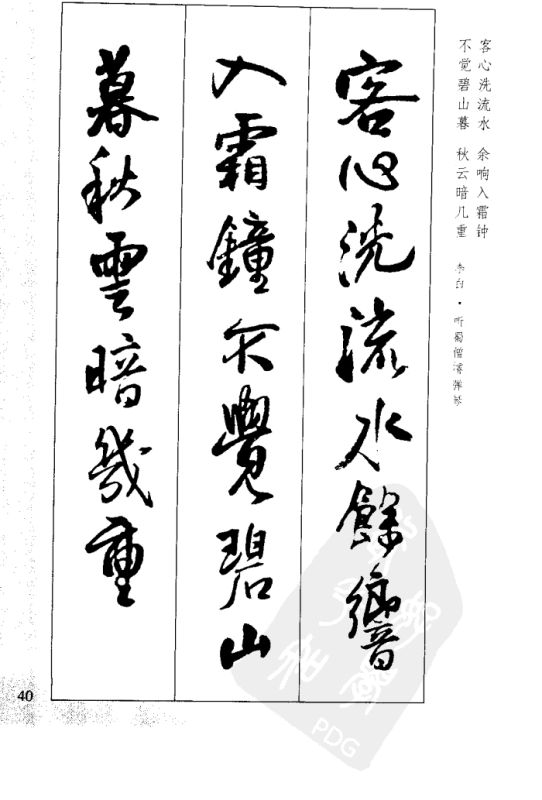 客心洗流水 余响入霜钟
不觉碧山暮 秋云暗几重
李白·听蜀僧濬弹琴
客心洗流水餘響
入霜鐘不覺碧山
暮秋雲暗幾重
40
PDG